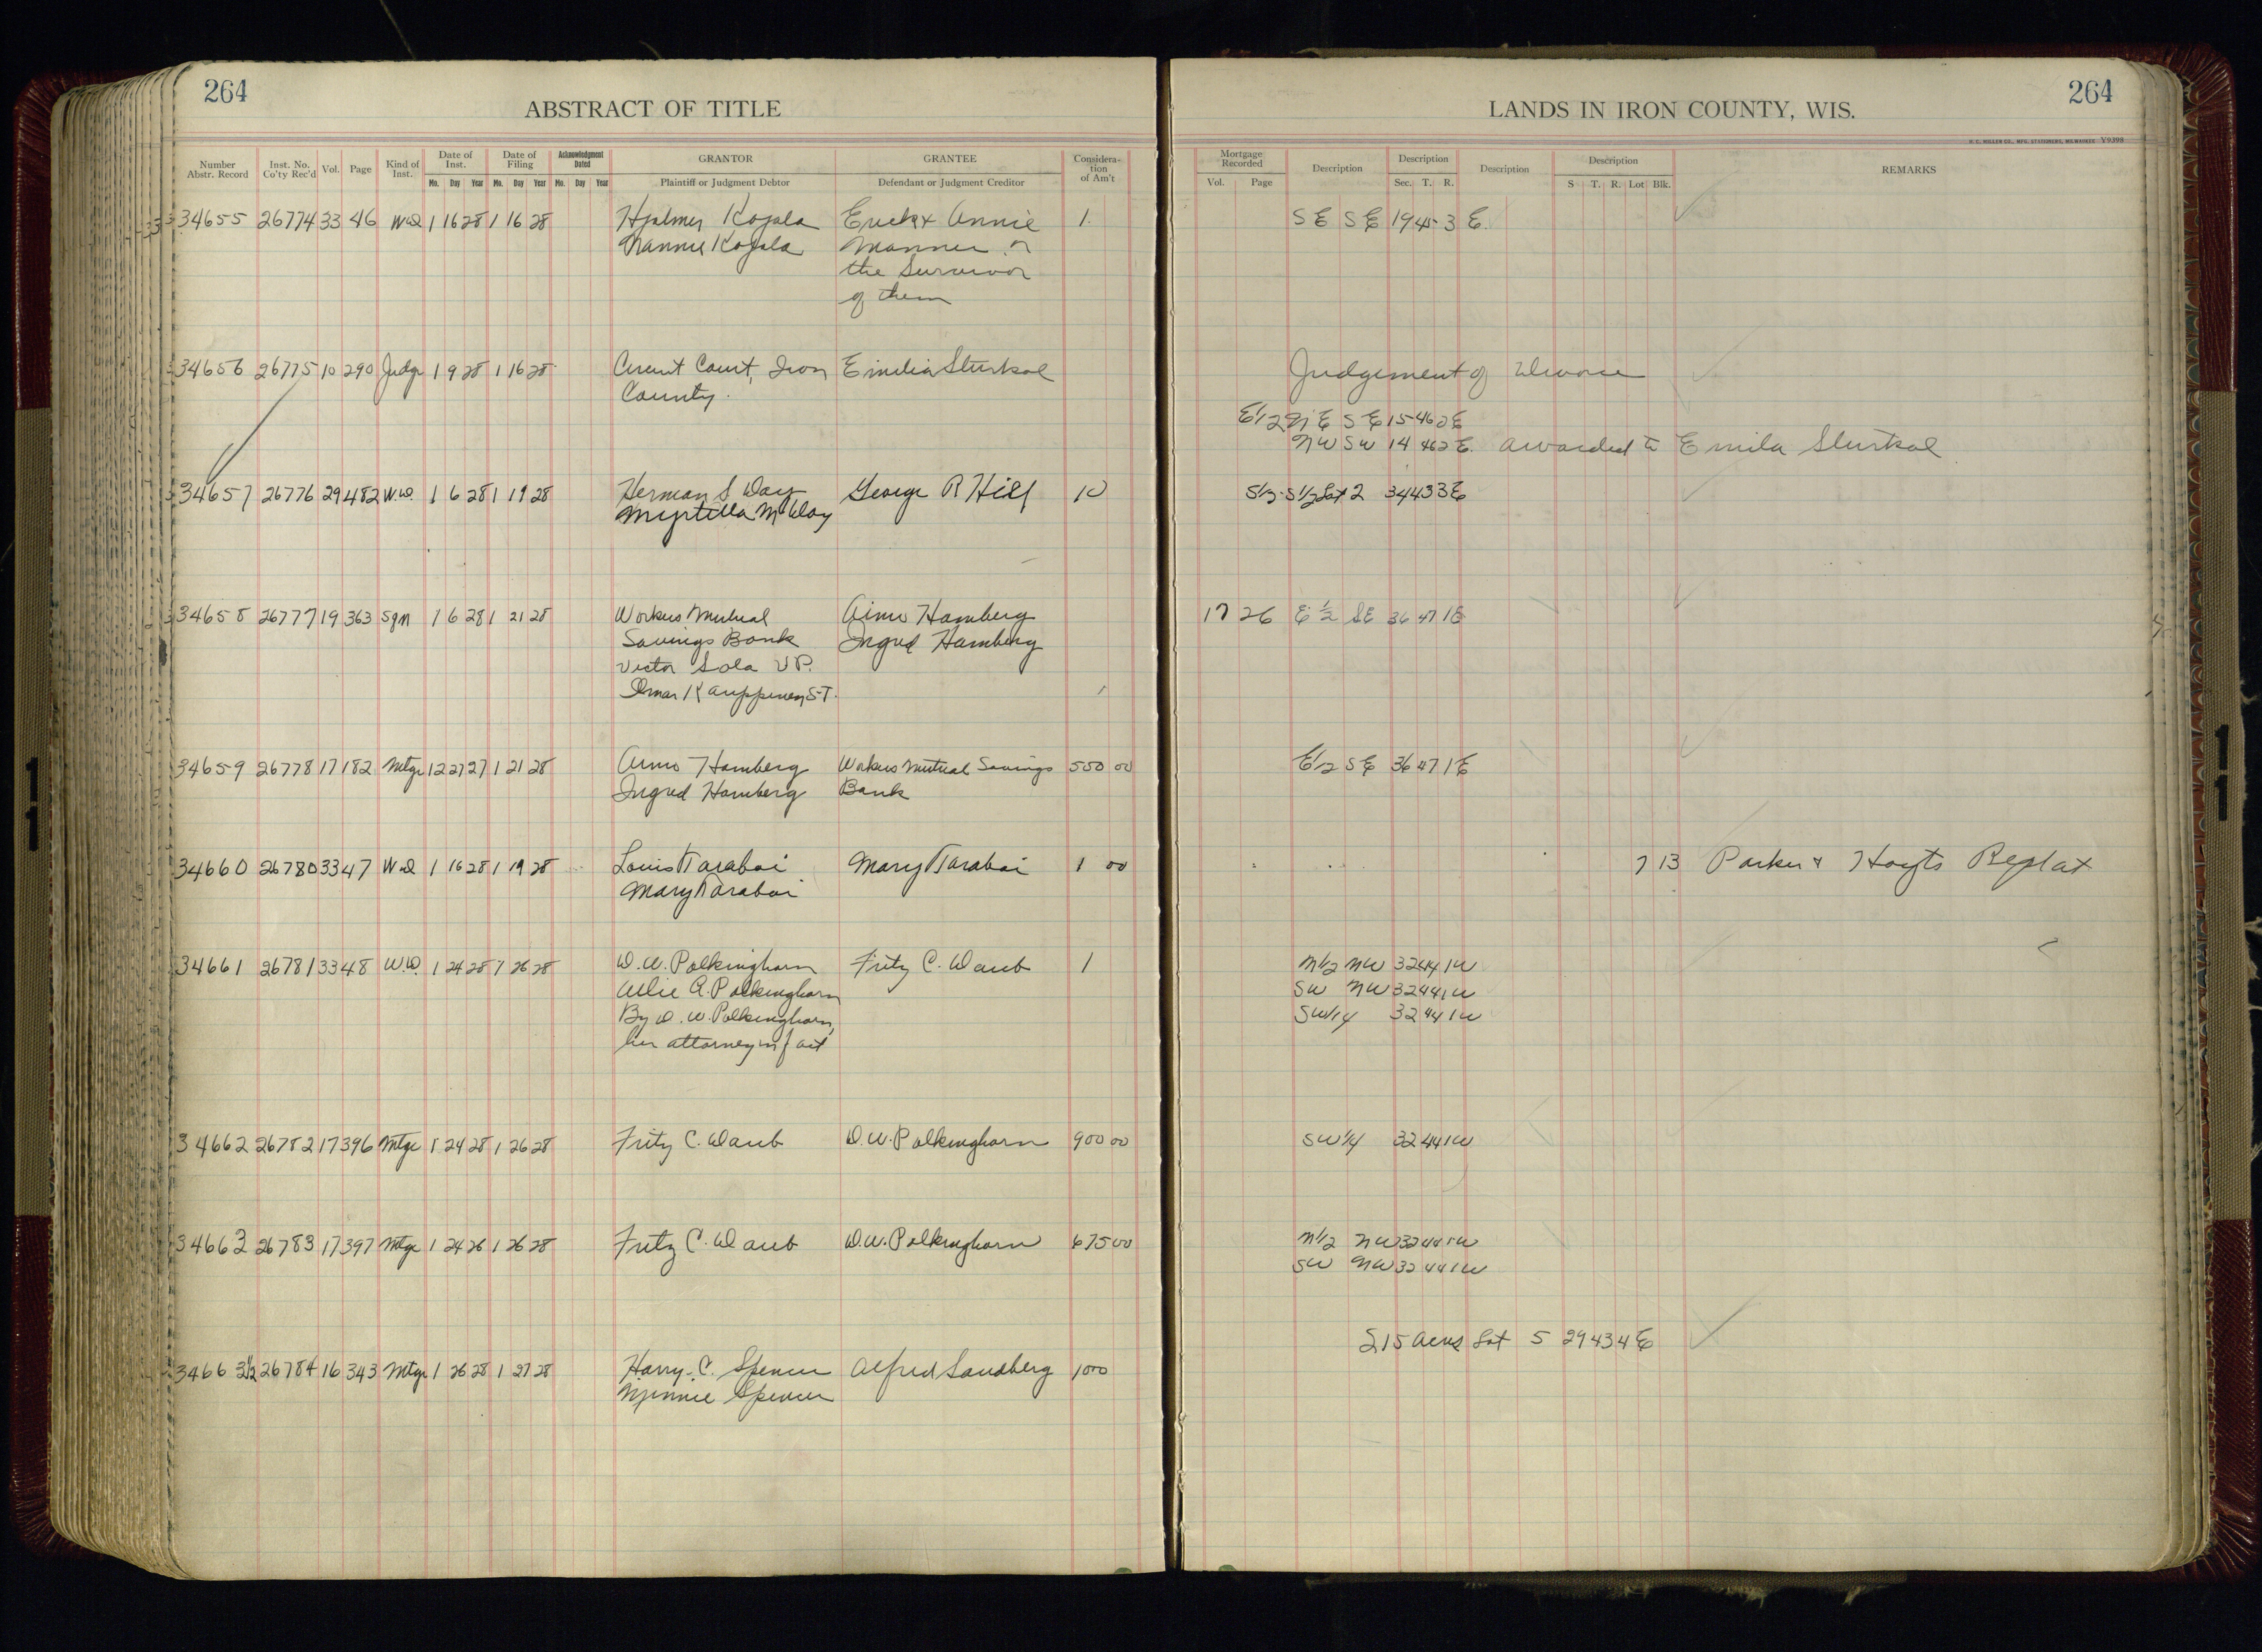 264
ABSTRACT OF TITLE
Number Abstr. Record Inst. No. Co'ty Rec'd Vol. Page Kind of Inst. Date of Inst. Mo. Day Year Date of Filing Mo. Day Year Acknowledgment Dated Mo. Day Year GRANTOR Plaintiff or Judgment Debtor GRANTEE Defendant or Judgment Creditor Consideration of Am't
34655 26774 33 46 Wd 1 16 28 1 16 28 Hjalmer Kojola Erick & Annie 1.
Nannie Kojola Manner or
the Survivor
of them
34656 26775 10 290 Judge 1 9 28 1 16 28 Circuit Court, Iron Emilia Sturkol
County.
34657 26776 29 482 W.D. 1 6 28 1 19 28 Herman S Day George R Hill 10
Myrtilla M Day
34658 26777 19 363 Sgn 1 6 28 1 21 28 Workers Mutual Aimo Hamberg
Savings Bank Ingred Hamberg
Victor Sola V P.
Ilmar Kauppinen, S-T.
34659 26778 17 182 Mtge 12 27 27 1 21 28 Aimo Hamberg Workers Mutual Savings 550 00
Ingred Hamberg Bank
34660 26780 33 47 Wd 1 16 28 1 19 28 Louis Taraboi Mary Taraboi 1 00
Mary Taraboi
34661 26781 33 48 W.D. 1 24 28 1 26 28 D.W. Polkinghorn Fritz C. Daub 1
Allie A. Polkinghorn
By D. W. Polkinghorn,
her attorney in fact
34662 26782 17 396 Mtge 1 24 28 1 26 28 Fritz C. Daub D.W. Polkinghorn 900 00
34663 26783 17 397 Mtge 1 24 28 1 26 28 Fritz C. Daub D.W. Polkinghorn 675 00
34663 1/2 26784 16 343 Mtge 1 26 28 1 27 28 Harry C. Spencer Alfred Sandberg 1000
Minnie Spencer
264
LANDS IN IRON COUNTY, WIS.
H. C. MILLER CO., MFG. STATIONERS, MILWAUKEE V9398
Mortgage Recorded Vol. Page Description Description Sec. T. R. Description Description S T. R. Lot Blk. REMARKS
SE SE 19 45 3 E.
Judgement of Divorce
E1/2 NE SE 15 46 2 E
NW SW 14 46 2 E. awarded to Emila Sturkol
S1/2 S1/2 Lot 2 34 43 3 E
17 26 E 1/2 SE 36 47 1 E
E1/2 SE 36 47 1 E
7 13 Parker & Hoyts Replat
N1/2 NW 32 44 1 W
SW NW 32 44 1 W
SW1/4 32 44 1 W
SW 1/4 32 44 1 W
N1/2 NW 32 44 1 W
SW NW 32 44 1 W
S 15 acres Lot 5 29 43 4 E